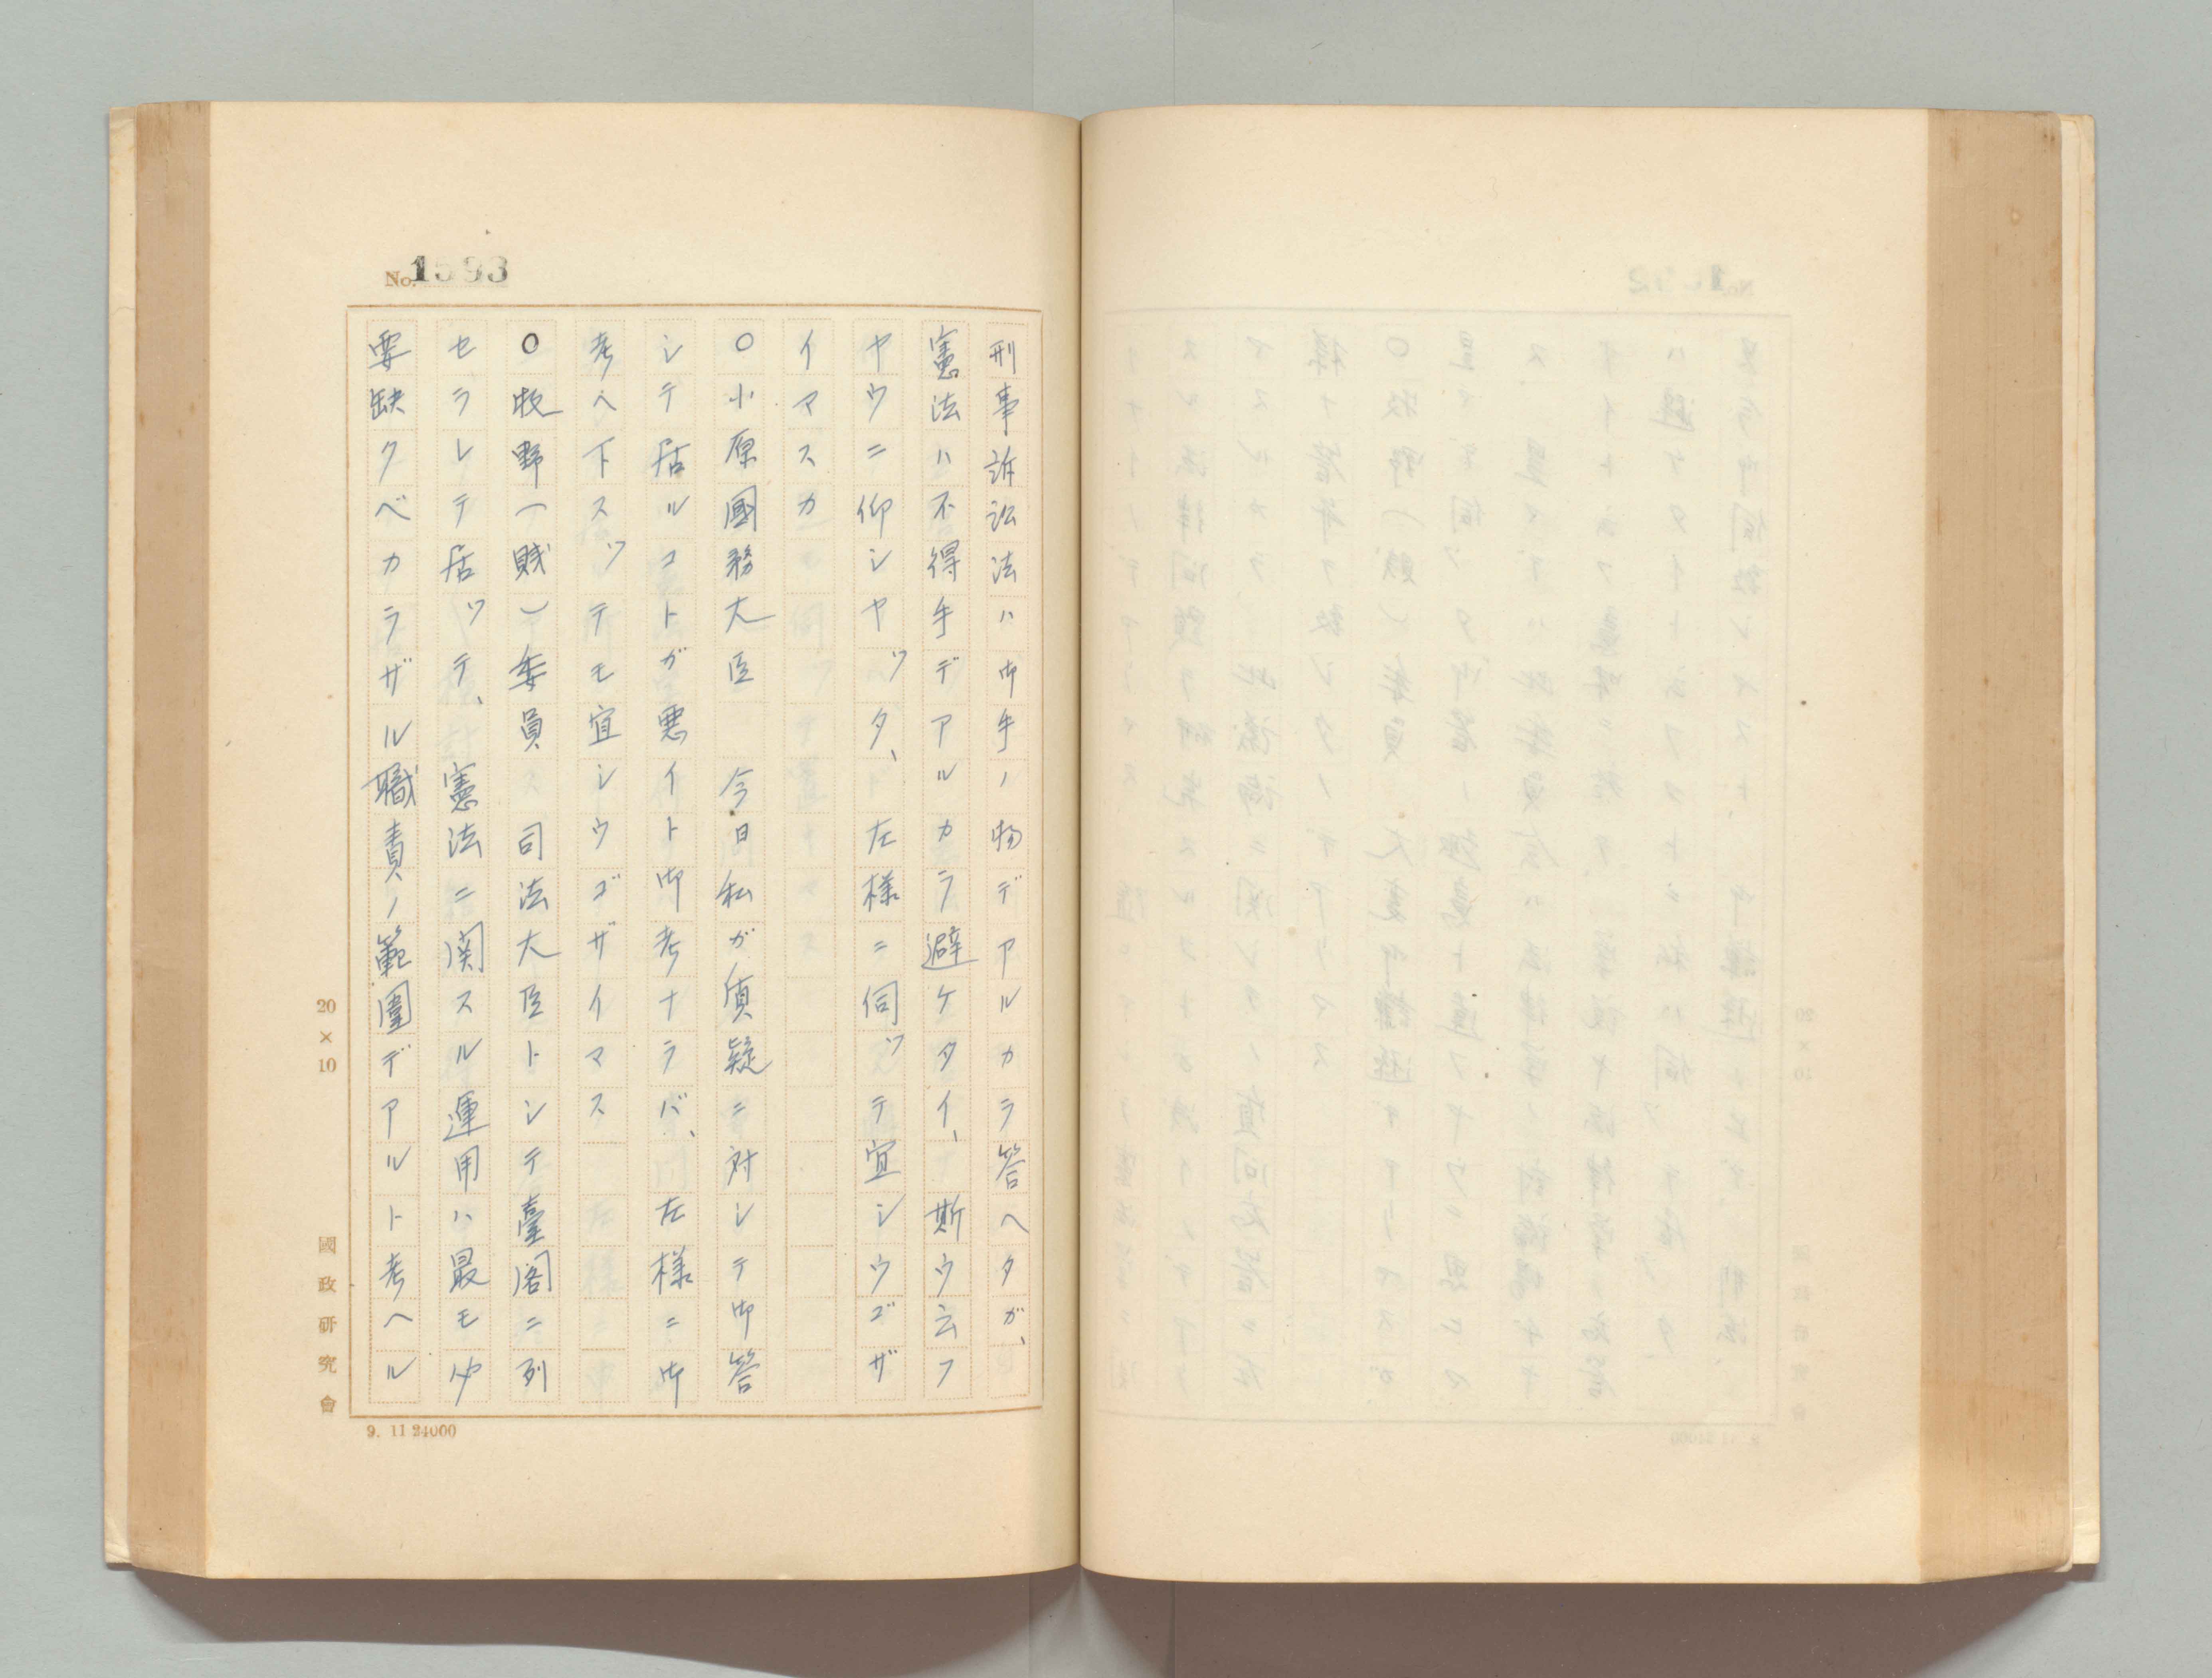 No. 1593
刑事訴訟法ハ御手ノ物デアルカラ答ヘタガ、
憲法ハ不得手デアルカラ避ケタイ、斯ウ云フ
ヤウニ仰シヤツタ、左様ニ伺ツテ宜シウゴザ
イマスカ
○小原國務大臣 今日私ガ質疑ニ対シテ御答
シテ居ルコトガ悪イト御考ナラバ、左様ニ御
考ヘ下スツテモ宜シウゴザイマス
○牧野(賤)委員 司法大臣トシテ臺閣ニ列
セラレテ居ツテ、憲法ニ関スル運用ハ最モ必
要缺クベカラザル職責ノ範圍デアルト考ヘル
20×10
國政研究會
9. 11 24000